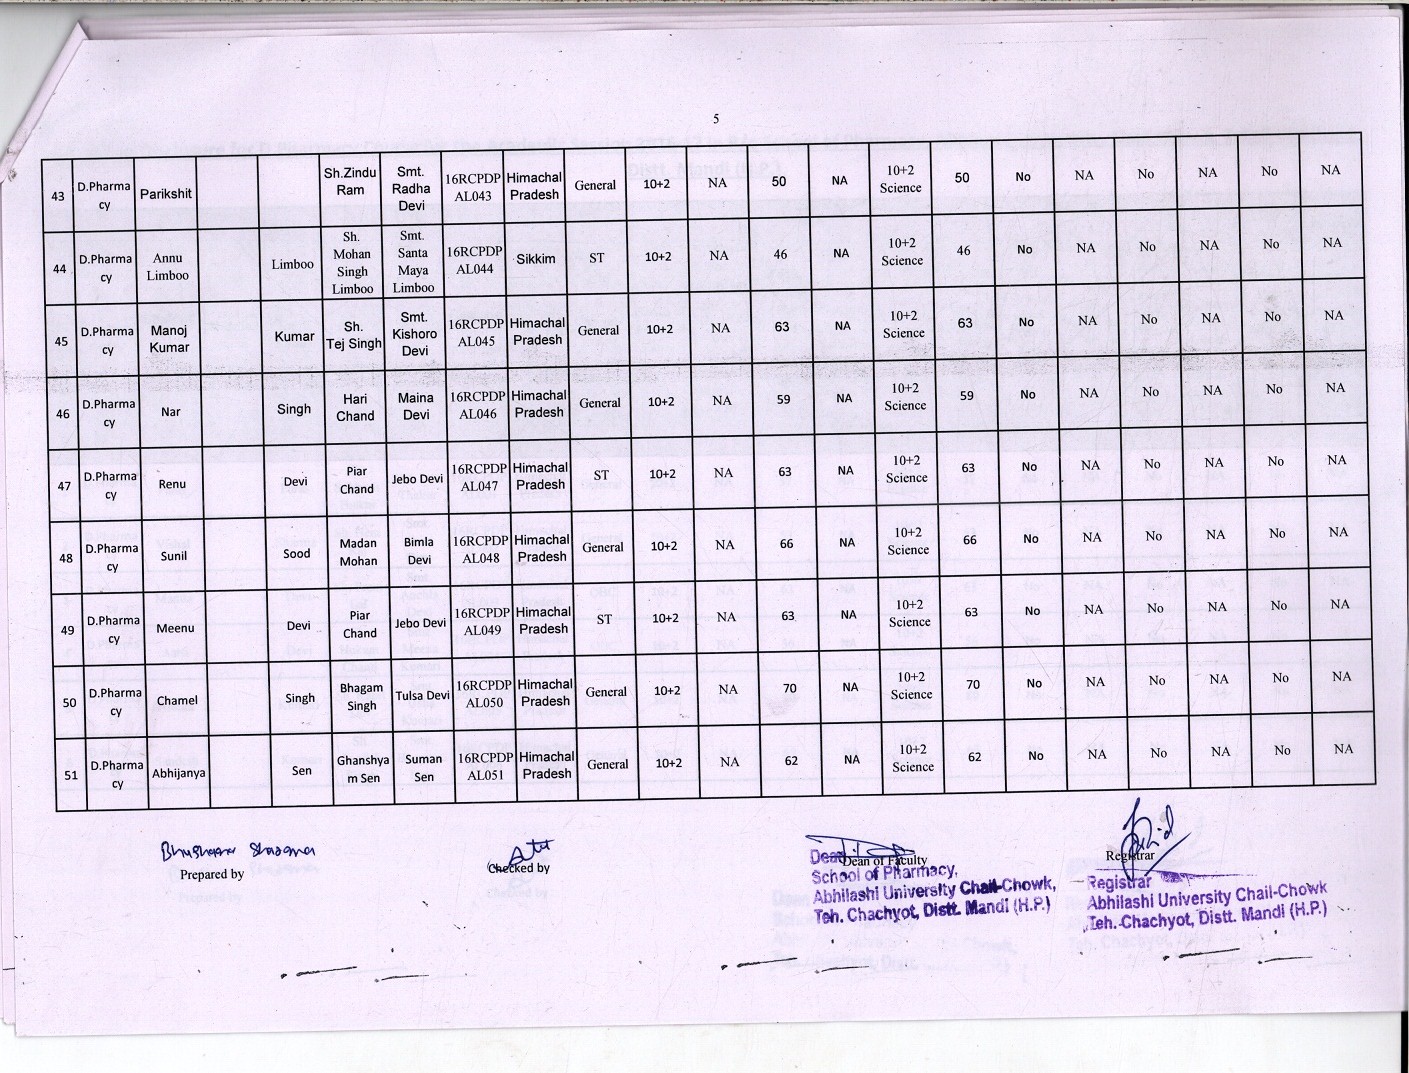 5
43 D.Pharmacy Parikshit Sh.Zindu Ram Smt. Radha Devi 16RCPDPAL043 Himachal Pradesh General 10+2 NA 50 NA 10+2 Science 50 No NA No NA No NA
44 D.Pharmacy Annu Limboo Limboo Sh. Mohan Singh Limboo Smt. Santa Maya Limboo 16RCPDPAL044 Sikkim ST 10+2 NA 46 NA 10+2 Science 46 No NA No NA No NA
45 D.Pharmacy Manoj Kumar Kumar Sh. Tej Singh Smt. Kishoro Devi 16RCPDPAL045 Himachal Pradesh General 10+2 NA 63 NA 10+2 Science 63 No NA No NA No NA
46 D.Pharmacy Nar Singh Hari Chand Maina Devi 16RCPDPAL046 Himachal Pradesh General 10+2 NA 59 NA 10+2 Science 59 No NA No NA No NA
47 D.Pharmacy Renu Devi Piar Chand Jebo Devi 16RCPDPAL047 Himachal Pradesh ST 10+2 NA 63 NA 10+2 Science 63 No NA No NA No NA
48 D.Pharmacy Sunil Sood Madan Mohan Bimla Devi 16RCPDPAL048 Himachal Pradesh General 10+2 NA 66 NA 10+2 Science 66 No NA No NA No NA
49 D.Pharmacy Meenu Devi Piar Chand Jebo Devi 16RCPDPAL049 Himachal Pradesh ST 10+2 NA 63 NA 10+2 Science 63 No NA No NA No NA
50 D.Pharmacy Chamel Singh Bhagam Singh Tulsa Devi 16RCPDPAL050 Himachal Pradesh General 10+2 NA 70 NA 10+2 Science 70 No NA No NA No NA
51 D.Pharmacy Abhijanya Sen Ghanshyam Sen Suman Sen 16RCPDPAL051 Himachal Pradesh General 10+2 NA 62 NA 10+2 Science 62 No NA No NA No NA
Prepared by
Checked by
Dean of Faculty
Dean
School of Pharmacy,
Abhilashi University Chail-Chowk,
Teh. Chachyot, Distt. Mandi (H.P.)
Registrar
Registrar
Abhilashi University Chail-Chowk
Teh. Chachyot, Distt. Mandi (H.P.)